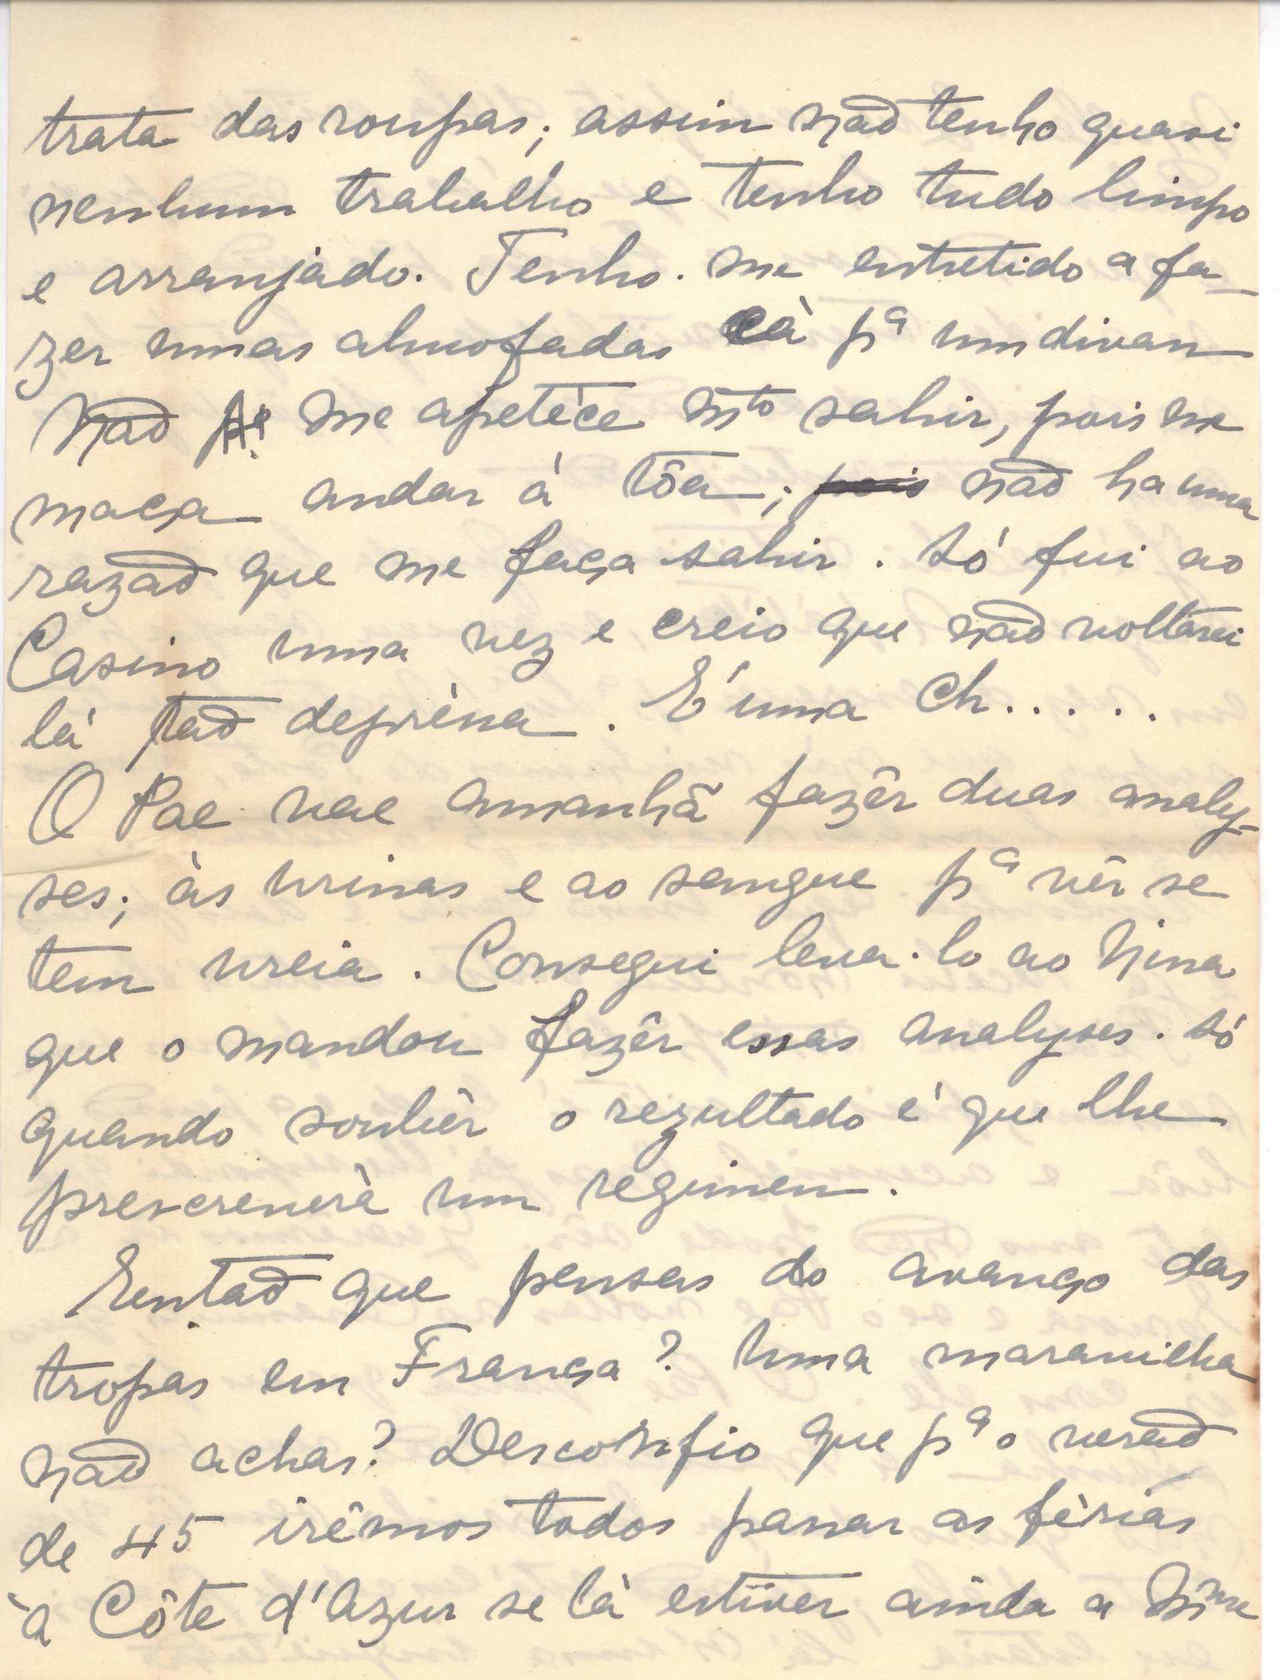 trata das roupas; assim não tenho quasi
nenhum trabalho e tenho tudo limpo
e arranjado. Tenho-me entretido a fa-
zer umas almofadas cà pª um divan
Não me apetèce mto sahir, pois me
maça andar à tôa; pois não ha uma
razão que me faça sahir. Só fui ao
Casino uma vez e creio que não voltarei
lá tão deprèssa. É uma Ch.....
O Pae vae amanhã fazêr duas analy-
ses; às urinas e ao sangue pª vêr se
tem ureia. Consegui leva-lo ao Nina
que o mandou fazêr essas analyses. Só
quando soubér o rezultado é que lhe
prescreverà um regimen.
Entaõ que pensas do avanço das
tropas em França? Uma maravilha
não achas? Desconfio que pª o verão
de 45 irêmos todos passar as fèrias
à Côte d'Azur se lá estiver ainda a